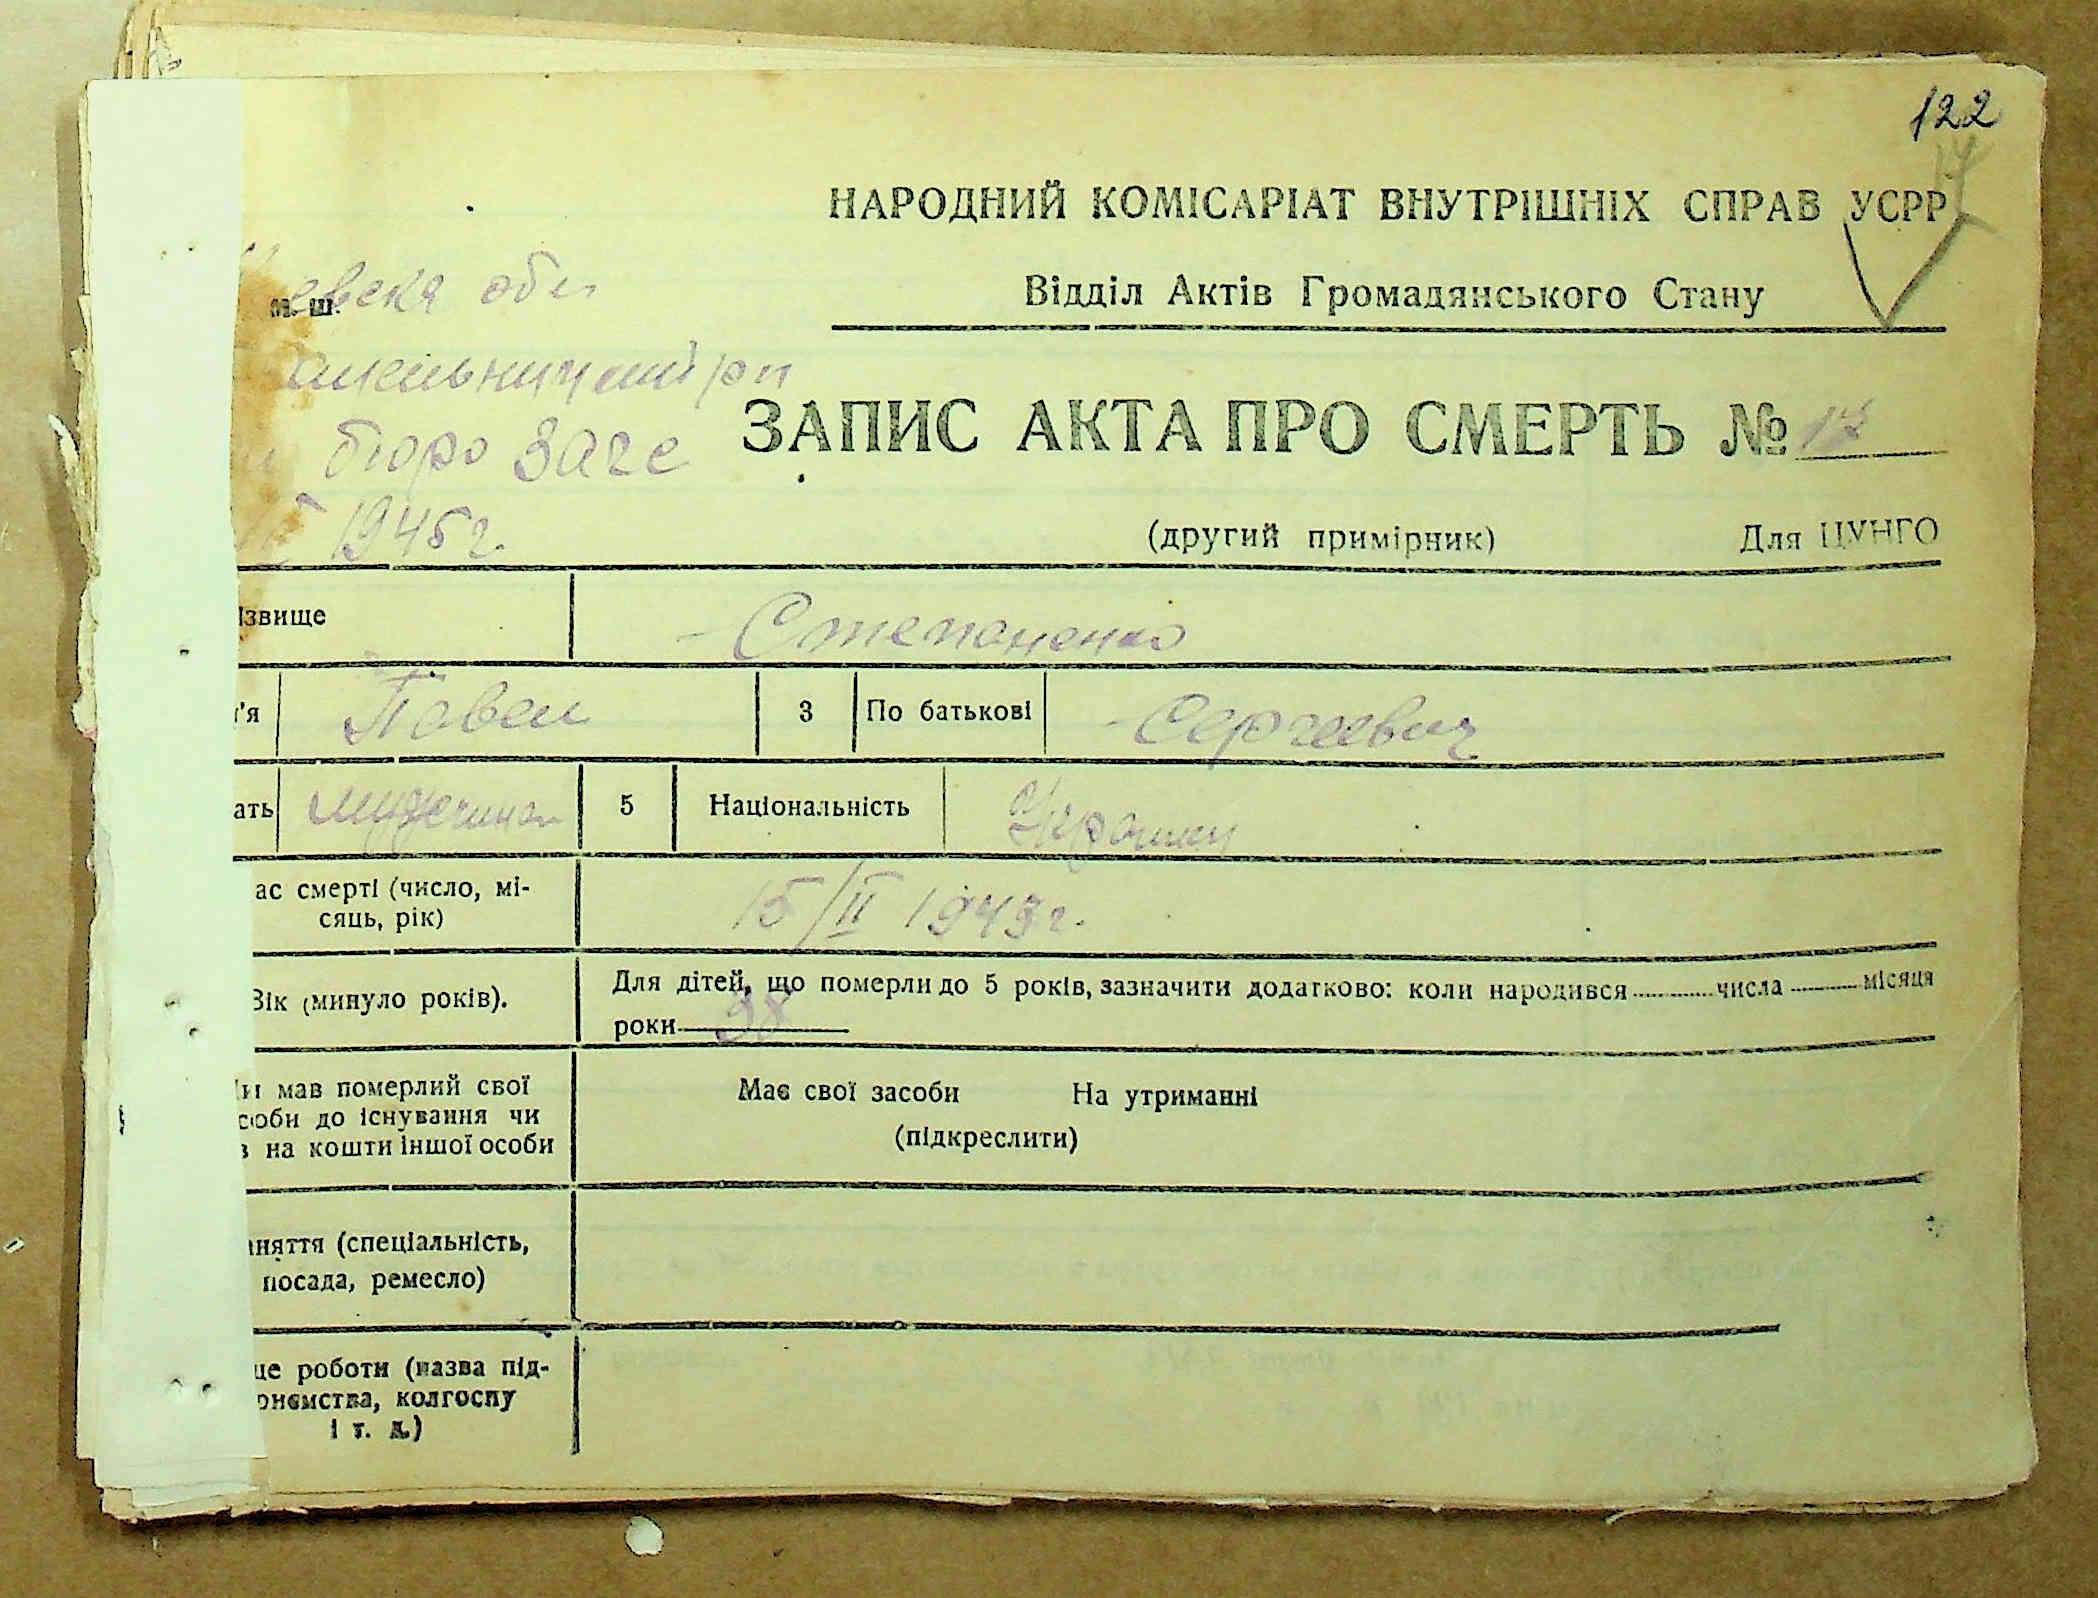 122
17
НАРОДНИЙ КОМІСАРІАТ ВНУТРІШНІХ СПРАВ УСРР
евска обл
Відділ Актів Громадянського Стану
мельничский р-н
ЗАПИС АКТА ПРО СМЕРТЬ № 17
бюро Загс
1945 г.
(другий примірник) Для ЦУНГО
ізвище Степаненко
'я Павел 3 По батькові Сергеевич
ать мужчина 5 Національність Украинец
ас смерті (число, мі-
сяць, рік) 15/II 1943 г.
Вік (минуло років). Для дітей, що померли до 5 років, зазначити додатково: коли народився числа місяця
роки 38
и мав померлий свої
соби до існування чи
в на кошти іншої особи
Має свої засоби На утриманні
(підкреслити)
няття (спеціальність,
посада, ремесло)
це роботи (назва під-
риємства, колгоспу
і т. д.)